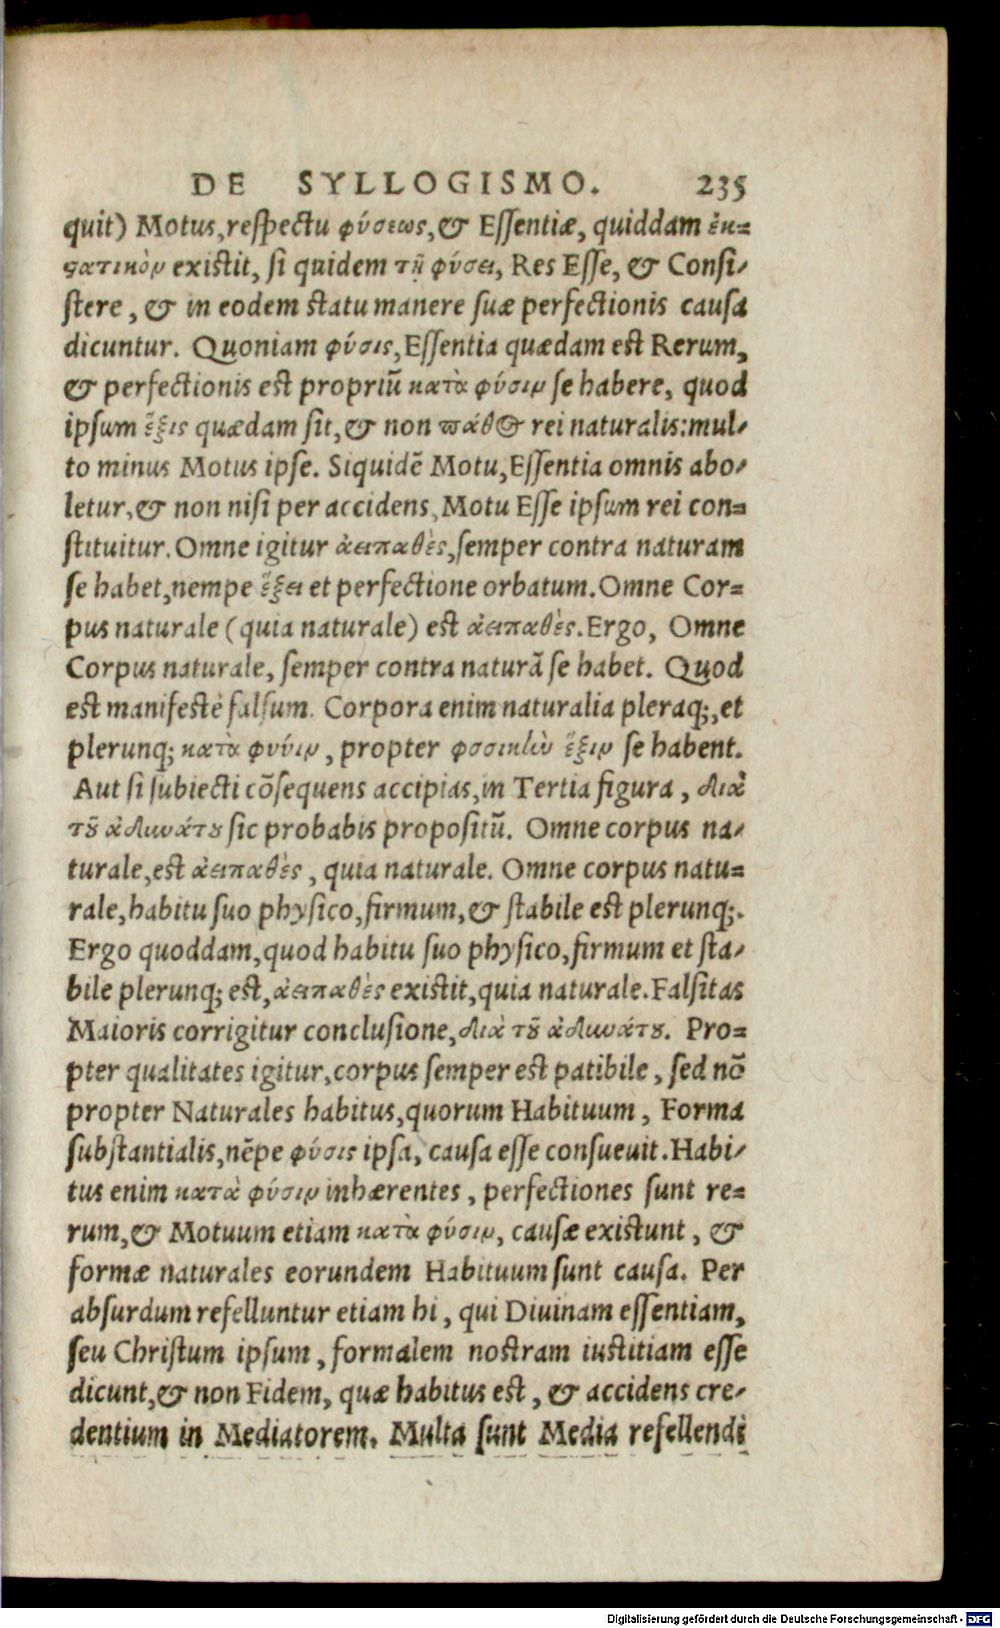 DE SYLLOGISMO. 235
quit) Motus, respectu φύσεως, & Essentiæ, quiddam ἐκ=
ςατικὸν existit, si quidem τῇ φύσει, Res Esse, & Consi-
stere, & in eodem statu manere suæ perfectionis causa
dicuntur. Quoniam φύσις, Essentia quædam est Rerum,
& perfectionis est propriū κατὰ φύσιν se habere, quod
ipsum ἕξις quædam sit, & non πάθος rei naturalis: mul-
to minus Motus ipse. Siquidē Motu, Essentia omnis abo-
letur, & non nisi per accidens, Motu Esse ipsum rei con=
stituitur. Omne igitur ἀειπαθὲς, semper contra naturam
se habet, nempe ἕξει et perfectione orbatum. Omne Cor=
pus naturale (quia naturale) est ἀειπαθὲς. Ergo, Omne
Corpus naturale, semper contra naturā se habet. Quod
est manifestè falsum. Corpora enim naturalia pleraq;, et
plerunq; κατὰ φύυιν, propter φσσικὴν ἕξιν se habent.
Aut si subiecti cōsequens accipias, in Tertia figura, διὰ
τοῦ ἀδυνάτου sic probabis propositū. Omne corpus na-
turale, est ἀειπαθὲς, quia naturale. Omne corpus natu=
rale, habitu suo physico, firmum, & stabile est plerunq;.
Ergo quoddam, quod habitu suo physico, firmum et sta-
bile plerunq; est, ἀειπαθὲς existit, quia naturale. Falsitas
Maioris corrigitur conclusione, διὰ τοῦ ἀδυνάτου. Pro=
pter qualitates igitur, corpus semper est patibile, sed nō
propter Naturales habitus, quorum Habituum, Forma
substantialis, nēpe φύσις ipsa, causa esse consueuit. Habi-
tus enim κατὰ φύσιν inhærentes, perfectiones sunt re=
rum, & Motuum etiam κατὰ φύσιν, causæ existunt, &
formæ naturales eorundem Habituum sunt causa. Per
absurdum refelluntur etiam hi, qui Diuinam essentiam,
seu Christum ipsum, formalem nostram iustitiam esse
dicunt, & non Fidem, quæ habitus est, & accidens cre-
dentium in Mediatorem. Multa sunt Media refellendi
Digitalisierung gefördert durch die Deutsche Forschungsgemeinschaft - DFG